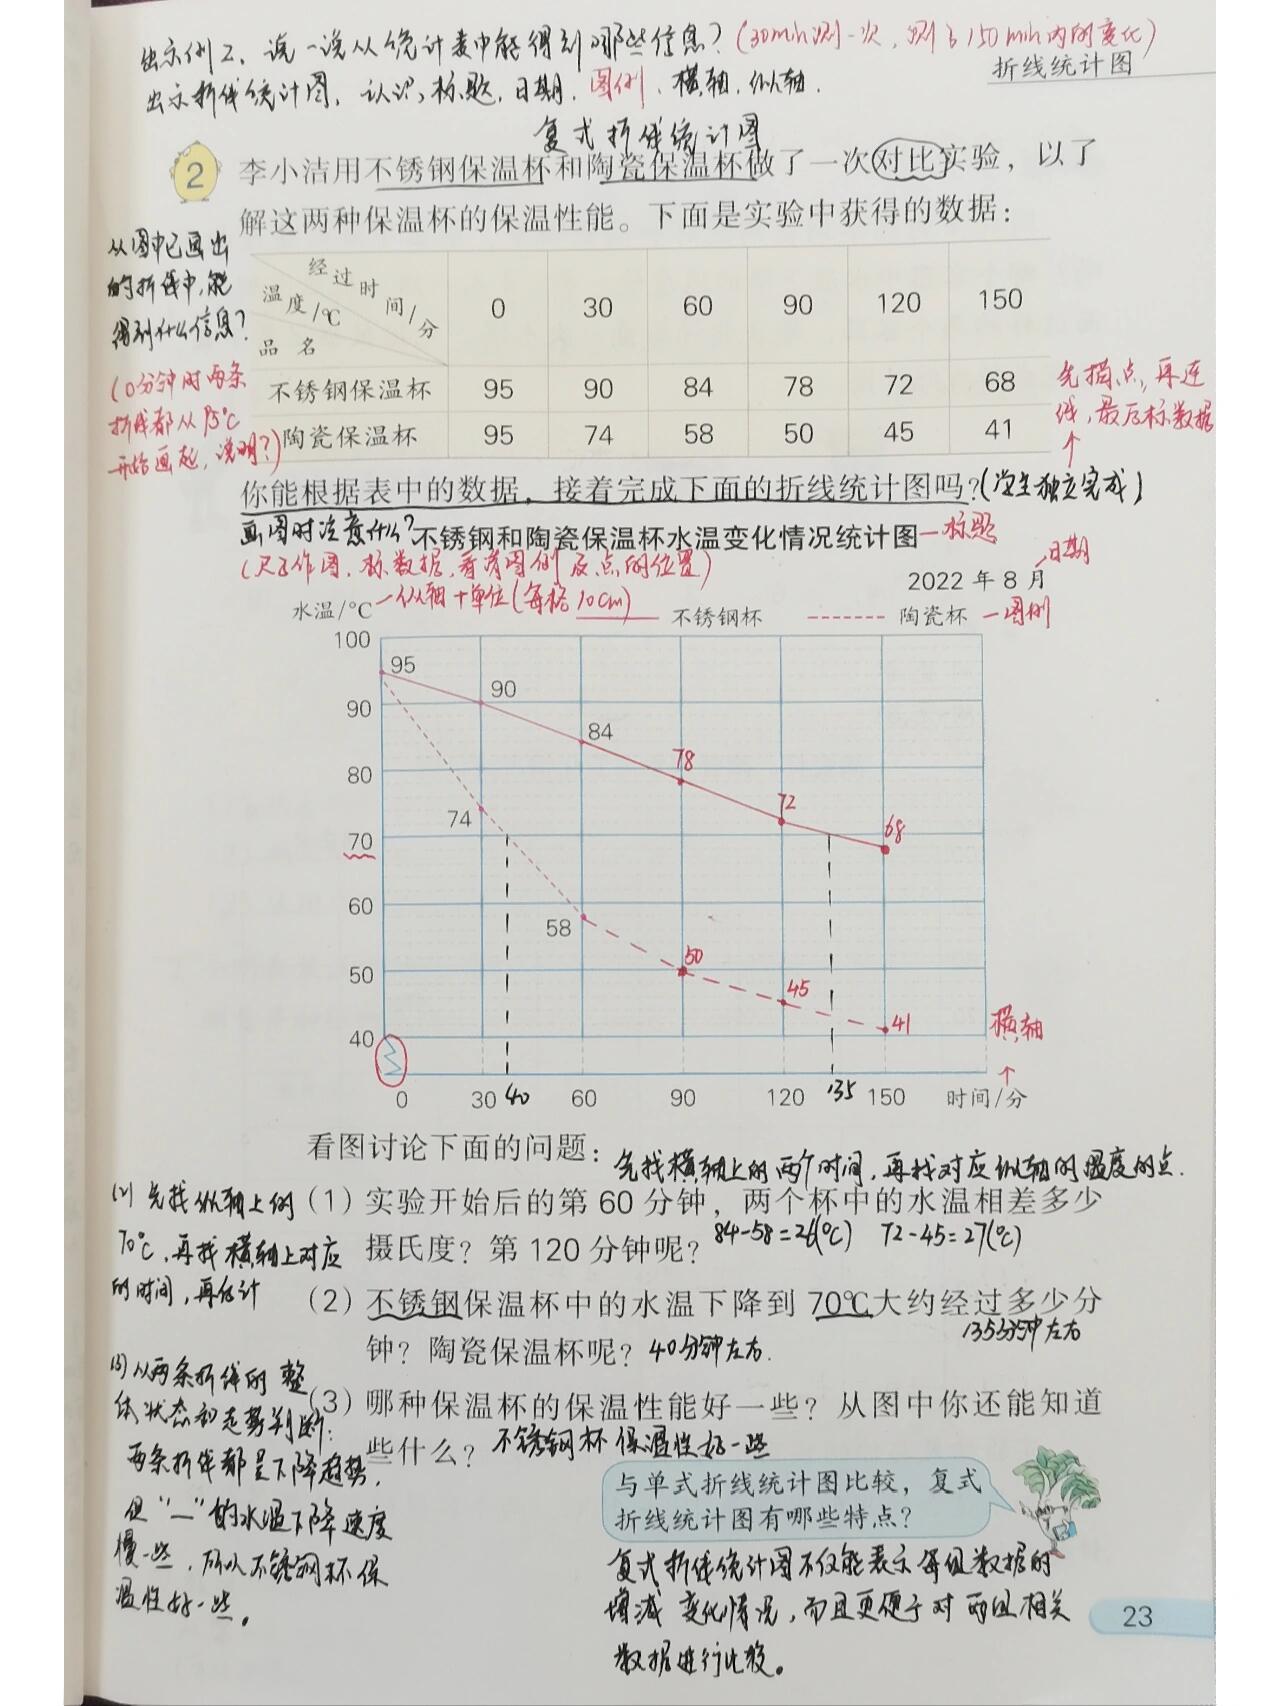 出示例2、说一说从统计表中能得到哪些信息？(30min测一次，测了150min内的变化)
折线统计图
出示折线统计图，认识，标题，日期，图例，横轴，纵轴．
复式折线统计图
2 李小洁用不锈钢保温杯和陶瓷保温杯做了一次对比实验，以了
解这两种保温杯的保温性能。下面是实验中获得的数据：
从图中已画出
的折线中，能
得到什么信息？
(0分钟时两条
折线都从95℃
开始画起，说明?)
经过时间/分
温度/℃
品名
0 30 60 90 120 150
不锈钢保温杯 95 90 84 78 72 68
陶瓷保温杯 95 74 58 50 45 41
先描点，再连
线，最后标数据
你能根据表中的数据，接着完成下面的折线统计图吗？(学生独立完成)
画图时注意什么？
不锈钢和陶瓷保温杯水温变化情况统计图—标题
(尺子作图，标数据，看清图例及点的位置)
日期
2022 年 8 月
水温/℃—纵轴+单位(每格10cm) 不锈钢杯 陶瓷杯—图例
100
95
90
90
84
80
78
74
72
70
68
60
58
50
50
45
41
40
横轴
0 30 40 60 90 120 135 150 时间/分
看图讨论下面的问题：先找横轴上的两个时间，再找对应纵轴的温度的点．
(1) 实验开始后的第 60 分钟，两个杯中的水温相差多少
摄氏度？第 120 分钟呢？84-58=26(℃) 72-45=27(℃)
(2) 先找纵轴上的
70℃，再找横轴上对应
的时间，再估计
(2) 不锈钢保温杯中的水温下降到 70℃大约经过多少分
135分钟左右
钟？陶瓷保温杯呢？40分钟左右．
(3) 从两条折线的整
体状态和走势判断：
两条折线都呈下降趋势，
但“—”的水温下降速度
慢一些，所以不锈钢杯保
温性好一些。
(3) 哪种保温杯的保温性能好一些？从图中你还能知道
些什么？不锈钢杯保温性好一些
与单式折线统计图比较，复式
折线统计图有哪些特点？
复式折线统计图不仅能表示每组数据的
增减变化情况，而且更便于对两组相关
数据进行比较。
23